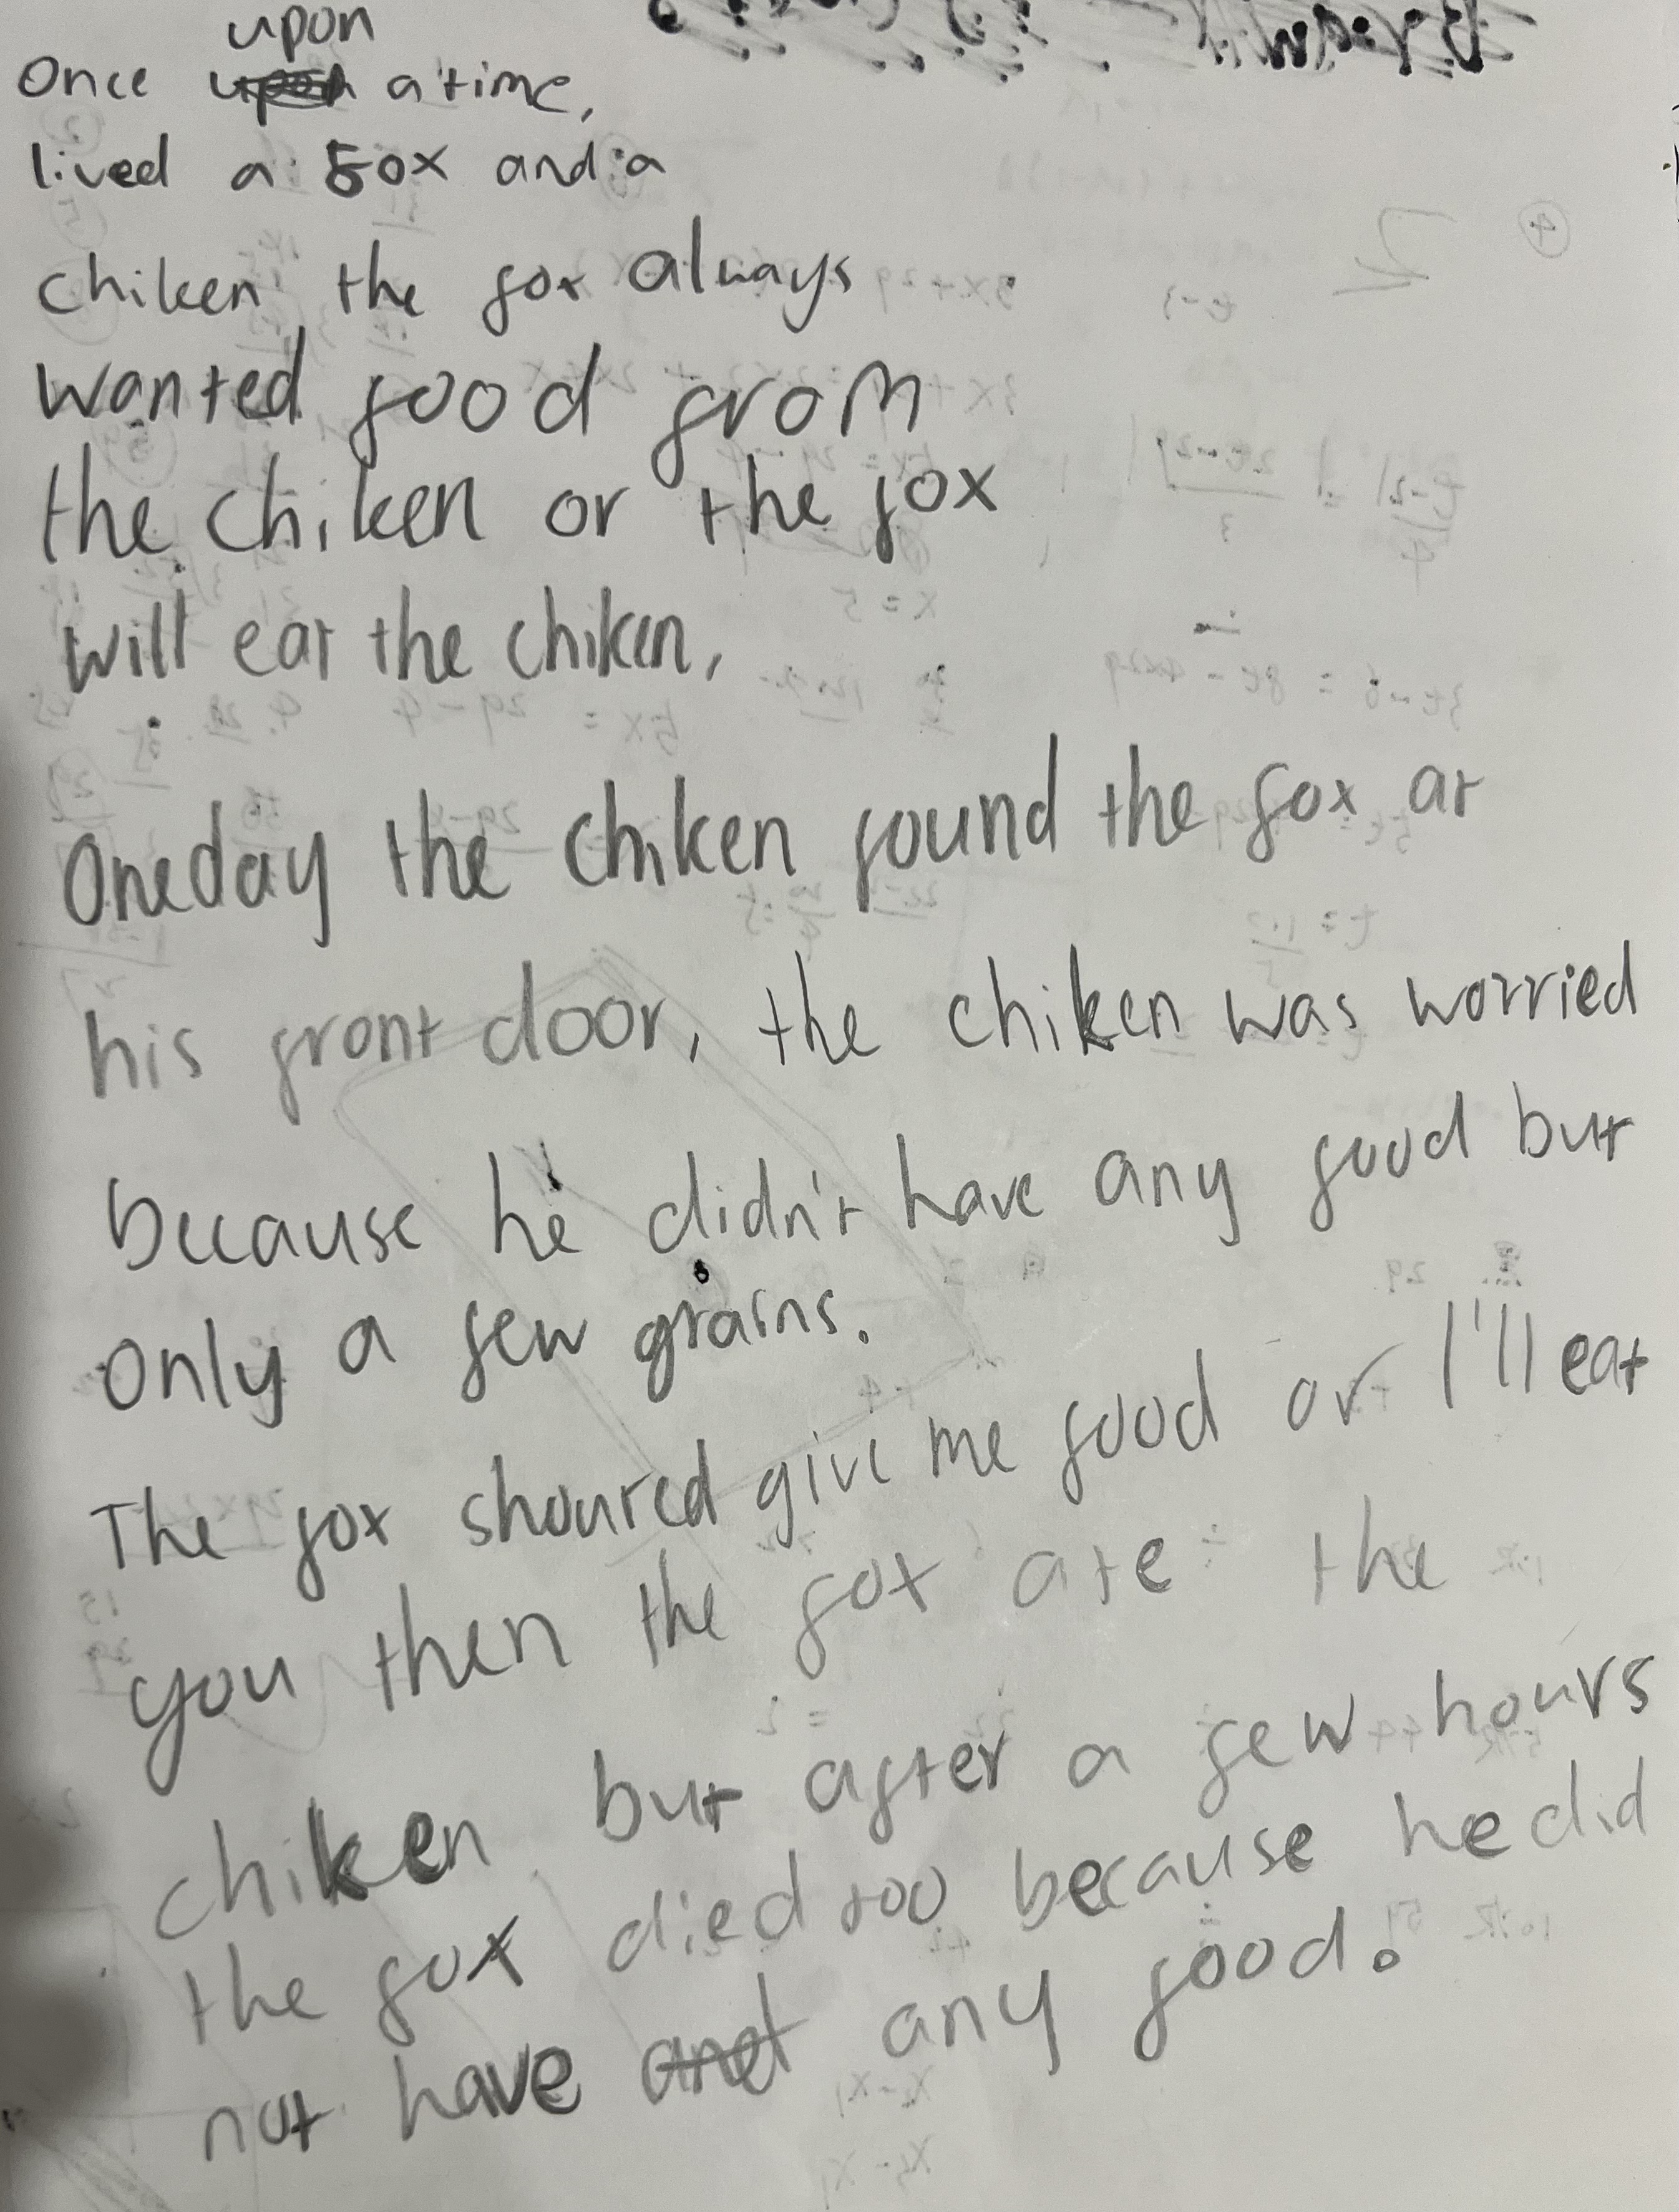 Once upon a time,
lived a fox and a
chiken, the fox always
wanted food from
the chiken or the fox
will eat the chiken,
Oneday the chiken found the fox at
his front door, the chiken was worried
because he didn't have any food but
only a few grains.
The fox shouted give me food or I'll eat
you then the fox ate the
chiken but after a few hours
the fox died too because he did
not have any food.